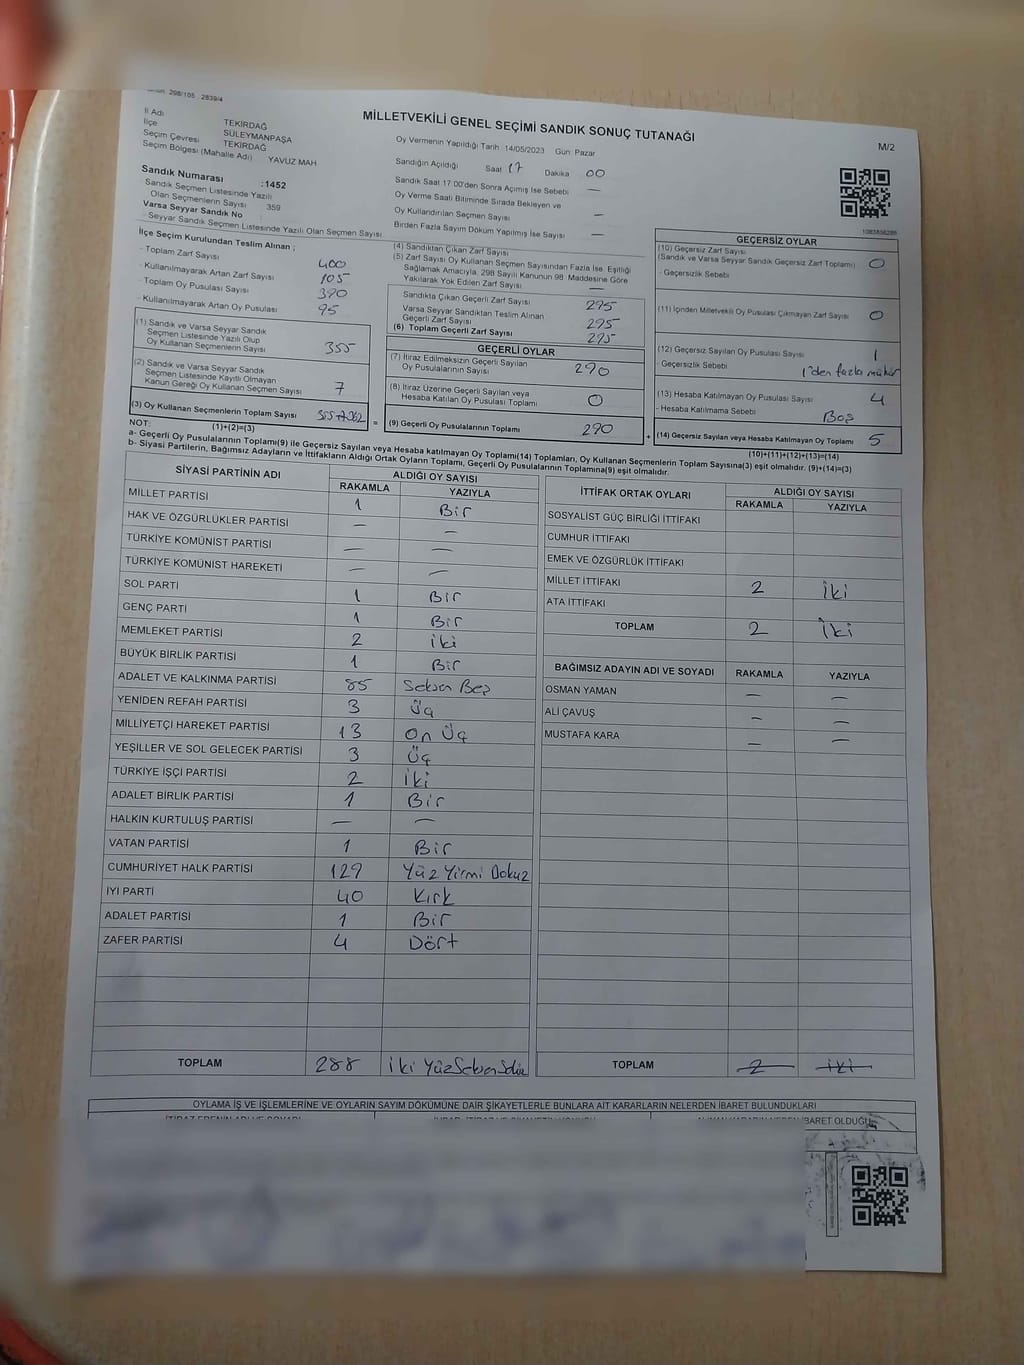 298/105 2839/4
MİLLETVEKİLİ GENEL SEÇİMİ SANDIK SONUÇ TUTANAĞI
M/2
İl Adı TEKİRDAĞ
İlçe SÜLEYMANPAŞA
Seçim Çevresi TEKİRDAĞ
Seçim Bölgesi (Mahalle Adı) YAVUZ MAH
Oy Vermenin Yapıldığı Tarih 14/05/2023 Gün: Pazar
Sandığın Açıldığı Saat 17 Dakika 00
Sandık Saat 17 00'den Sonra Açımış İse Sebebi —
Oy Verme Saati Bitiminde Sırada Bekleyen ve
Oy Kullandırılan Seçmen Sayısı —
Birden Fazla Sayım Döküm Yapılmış İse Sayısı —
Sandık Numarası :1452
Sandık Seçmen Listesinde Yazılı
Olan Seçmenlerin Sayısı 359
Varsa Seyyar Sandık No :
- Seyyar Sandık Seçmen Listesinde Yazılı Olan Seçmen Sayısı
1083856286
İlçe Seçim Kurulundan Teslim Alınan ;
- Toplam Zarf Sayısı 400
- Kullanılmayarak Artan Zarf Sayısı 105
- Toplam Oy Pusulası Sayısı 390
- Kullanılmayarak Artan Oy Pusulası 95
(1) Sandık ve Varsa Seyyar Sandık
Seçmen Listesinde Yazılı Olup
Oy Kullanan Seçmenlerin Sayısı 355
(2) Sandık ve Varsa Seyyar Sandık
Seçmen Listesinde Kayıtlı Olmayan
Kanun Gereği Oy Kullanan Seçmen Sayısı 7
(3) Oy Kullanan Seçmenlerin Toplam Sayısı =
(4) Sandıktan Çıkan Zarf Sayısı
(5) Zarf Sayısı Oy Kullanan Seçmen Sayısından Fazla İse Eşitliği
Sağlamak Amacıyla, 298 Sayılı Kanunun 98. Maddesine Göre
Yakılarak Yok Edilen Zarf Sayısı —
Sandıkta Çıkan Geçerli Zarf Sayısı 295
Varsa Seyyar Sandıktan Teslim Alınan
Geçerli Zarf Sayısı 295
(6) Toplam Geçerli Zarf Sayısı 295
GEÇERLİ OYLAR
(7) İtiraz Edilmeksizin Geçerli Sayılan
Oy Pusulalarının Sayısı 290
(8) İtiraz Üzerine Geçerli Sayılan veya
Hesaba Katılan Oy Pusulası Toplamı 0
(9) Geçerli Oy Pusulalarının Toplamı 290 +
GEÇERSİZ OYLAR
(10) Geçersiz Zarf Sayısı
(Sandık ve Varsa Seyyar Sandık Geçersiz Zarf Toplamı) 0
- Geçersizlik Sebebi
(11) İçinden Milletvekili Oy Pusulası Çıkmayan Zarf Sayısı 0
(12) Geçersiz Sayılan Oy Pusulası Sayısı 1
- Geçersizlik Sebebi 1'den fazla mühür
(13) Hesaba Katılmayan Oy Pusulası Sayısı 4
- Hesaba Katılmama Sebebi Boş
(14) Geçersiz Sayılan veya Hesaba Katılmayan Oy Toplamı 5
NOT: (1)+(2)=(3) (10)+(11)+(12)+(13)=(14)
a- Geçerli Oy Pusulalarının Toplamı(9) ile Geçersiz Sayılan veya Hesaba Katılmayan Oy Toplamı(14) Toplamları, Oy Kullanan Seçmenlerin Toplam Sayısına(3) eşit olmalıdır. (9)+(14)=(3)
b- Siyasi Partilerin, Bağımsız Adayların ve İttifakların Aldığı Ortak Oyların Toplamı, Geçerli Oy Pusulalarının Toplamına(9) eşit olmalıdır.
SİYASİ PARTİNİN ADI ALDIĞI OY SAYISI
RAKAMLA YAZIYLA
MİLLET PARTİSİ 1 Bir
HAK VE ÖZGÜRLÜKLER PARTİSİ — —
TÜRKİYE KOMÜNİST PARTİSİ — —
TÜRKİYE KOMÜNİST HAREKETİ — —
SOL PARTİ 1 Bir
GENÇ PARTİ 1 Bir
MEMLEKET PARTİSİ 2 iki
BÜYÜK BİRLİK PARTİSİ 1 Bir
ADALET VE KALKINMA PARTİSİ 85 Seksen Beş
YENİDEN REFAH PARTİSİ 3 Üç
MİLLİYETÇİ HAREKET PARTİSİ 13 On Üç
YEŞİLLER VE SOL GELECEK PARTİSİ 3 Üç
TÜRKİYE İŞÇİ PARTİSİ 2 İki
ADALET BİRLİK PARTİSİ 1 Bir
HALKIN KURTULUŞ PARTİSİ — —
VATAN PARTİSİ 1 Bir
CUMHURİYET HALK PARTİSİ 129 Yüz Yirmi Dokuz
İYİ PARTİ 40 Kırk
ADALET PARTİSİ 1 Bir
ZAFER PARTİSİ 4 Dört
TOPLAM 288 iki Yüz Seksen
İTTİFAK ORTAK OYLARI ALDIĞI OY SAYISI
RAKAMLA YAZIYLA
SOSYALİST GÜÇ BİRLİĞİ İTTİFAKI
CUMHUR İTTİFAKI
EMEK VE ÖZGÜRLÜK İTTİFAKI
MİLLET İTTİFAKI 2 İki
ATA İTTİFAKI
TOPLAM 2 İki
BAĞIMSIZ ADAYIN ADI VE SOYADI RAKAMLA YAZIYLA
OSMAN YAMAN — —
ALİ ÇAVUŞ — —
MUSTAFA KARA — —
TOPLAM 2 iki
OYLAMA İŞ VE İŞLEMLERİNE VE OYLARIN SAYIM DÖKÜMÜNE DAİR ŞİKAYETLERLE BUNLARA AİT KARARLARIN NELERDEN İBARET BULUNDUKLARI
İBARET OLDUĞU